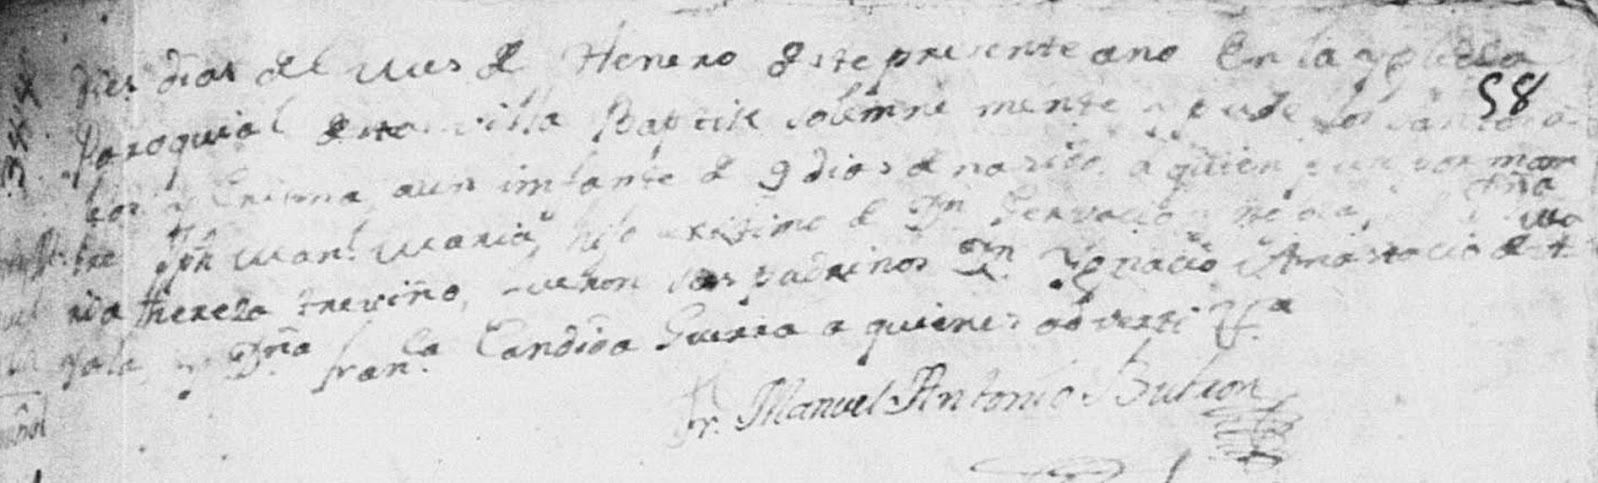 Dies dias del mes de Henero deste presente ano En la yglecia
58
Paroquial desta villa Baptise solemne mente y puse los santos o-
leos y Crisma, a un infante de 9 dias de nacido, a quien por nom
bre Jph Manl. Maria, hijo lexitimo de Dn Gervacio y Dña Ma
ria thereza treviño, fueron sus padrinos Dn. Ygnacio Anastacio de A
yala, y Dña franca. Candida Guerra a quienes adverti
Fr. Manuel Antonio Butron